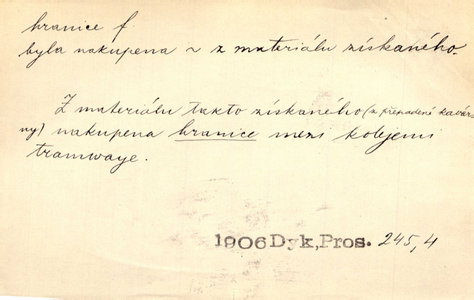 hranice f.
byla nakupena ~ z materiálu získaného.
Z materiálu takto získaného (z přepadené kavár-
ny) nakupena hranice mezi kolejemi
tramwaye.
1906 Dyk, Pros. 245,4